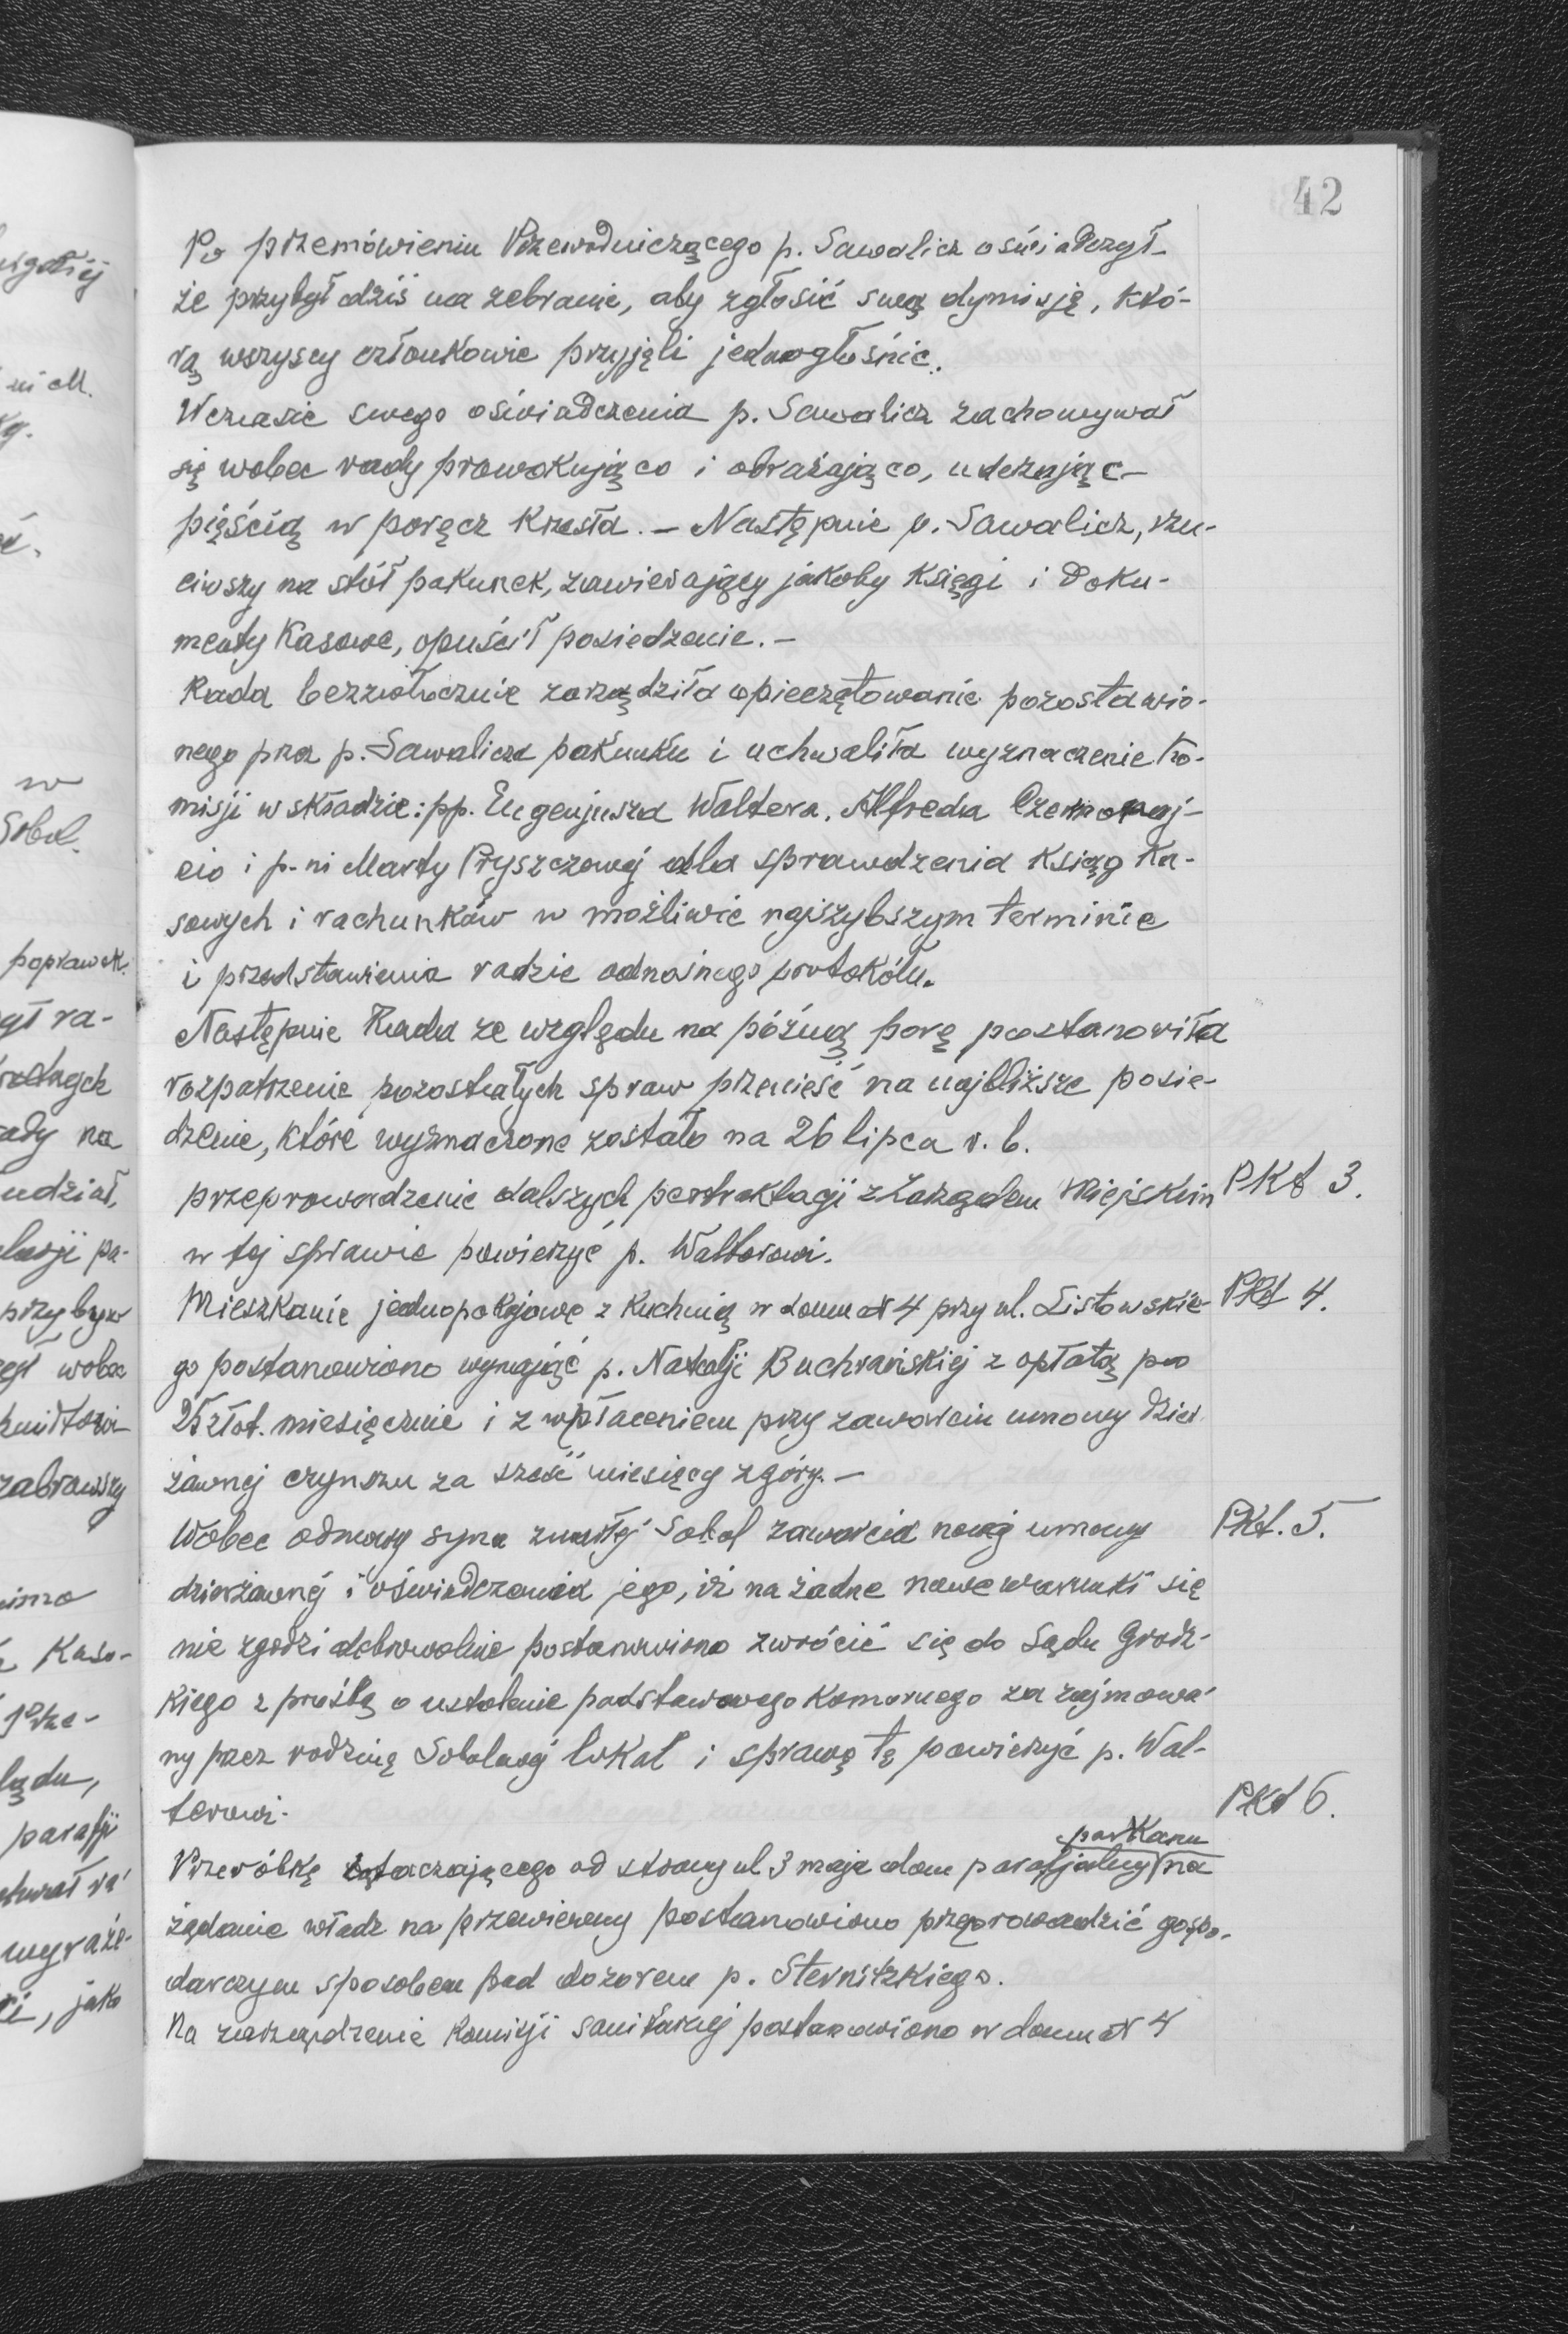 42
Po przemówieniu Przewodniczącego p. Sawalicz oświadczył
że przybył dziś na zebranie, aby zgłosić swą dymisję, któ-
rą wszyscy członkowie przyjęli jednogłośnie.
Wczasie swego oświadczenia p. Sawalicz zachowywał
się wobec rady prowokująco i obrażająco, uderzając
pięścią w poręcz krzesła. – Następnie p. Sawalicz, rzu-
ciwszy na stół pakunek, zawierający jakoby księgi i doku-
menty kasowe, opuścił posiedzenie. –
Rada bezzwłocznie zarządziła opieczętowanie pozostawio-
nego prze p. Sawalicza pakunku i uchwaliła wyznaczenie ko-
misji w składzie: pp. Eugenjusza Waltera, Alfreda
cio i p-ni Marty Pryszczowej dla sprawdzenia ksiąg ka-
sowych i rachunków w możliwie najszybszym terminie
i przedstawienia radzie odnośnego protokółu.
Następnie Rada ze względu na późną porę postanowiła
rozpatrzenie pozostałych spraw przenieść na najbliższe posie-
dzenie, które wyznaczone zostało na 26 lipca r. b.
przeprowadzenie dalszych pertraktacji z Zarządem Miejskim PKt 3.
w tej sprawie powierzyć p. Walterowi.
Mieszkanie jednopokojowe z kuchnią w domu N 4 przy ul. Listowskie- PKt 4.
go postanowiono wynająć p. Natalji Buchrańskiej z opłatą po
25 złot. miesięcznie i z wpłaceniem przy zawarciu umowy dzier
żawnej czynszu za sześć miesięcy zgóry. –
Wobec odmowy syna zmarłej Sobol zawarcia nowej umowy PKt. 5.
dzierżawnej i oświadczenia jego, iż na żadne nowe warunki się
nie zgodzi dobrowolnie postanowiono zwrócić się do Sądu Grodz-
kiego z prośbą o ustalenie podstawowego komornego za zajmowa-
ny przez rodzinę Sobolowej lokal i sprawę tę powierzyć p. Wal-
terowi. PKt 6.
parkanu
Przeróbkę otaczającego od strony ul 3 maja dom parafjalny na
żądanie władz na przewiewny postanowiono przeprowadzić gospo-
darczym sposobem pod dozorem p. Sternitzkiego.
Na zarządzenie Komisji sanitarnej postanowiono w domu N 4